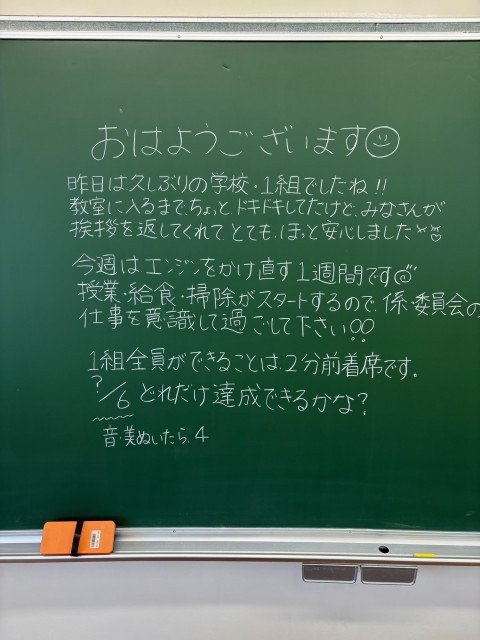 おはようございます
昨日は久しぶりの学校・1組でしたね!!
教室に入るまで、ちょっとドキドキしてたけど、みなさんが
挨拶を返してくれて、とても、ほっと安心しました
今週はエンジンをかけ直す1週間です
授業・給食・掃除がスタートするので、係・委員会の
仕事を意識して過ごして下さい!!
1組全員ができることは、2分前着席です。
?/6 どれだけ達成できるかな?
音・美ぬいたら、4